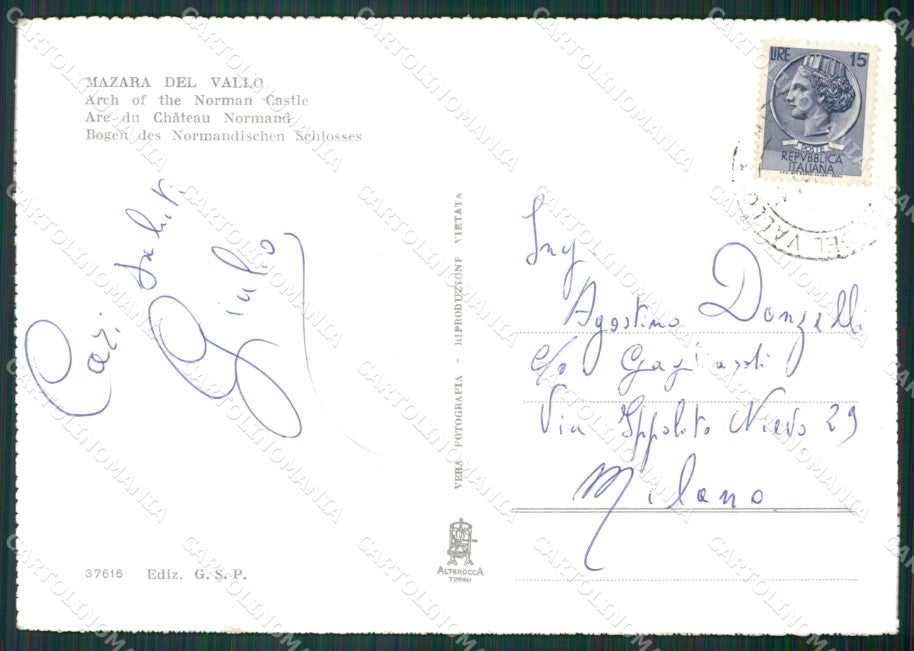 MAZARA DEL VALLO
Arch of the Norman Castle
Arc du Château Normand
Bogen des Normandischen Schlosses
LIRE 15
POSTE
REPVBBLICA
ITALIANA
DEL VALLO
Cari saluti
Giulio
VERA FOTOGRAFIA - RIPRODUZIONE VIETATA
Ing
Agostino Donzelli
c/o
Via Ippolito Nievo 29
Milano
ALTEROCCA
TERNI
37616 Ediz. G. S. P.
CARTOLINOMANIA